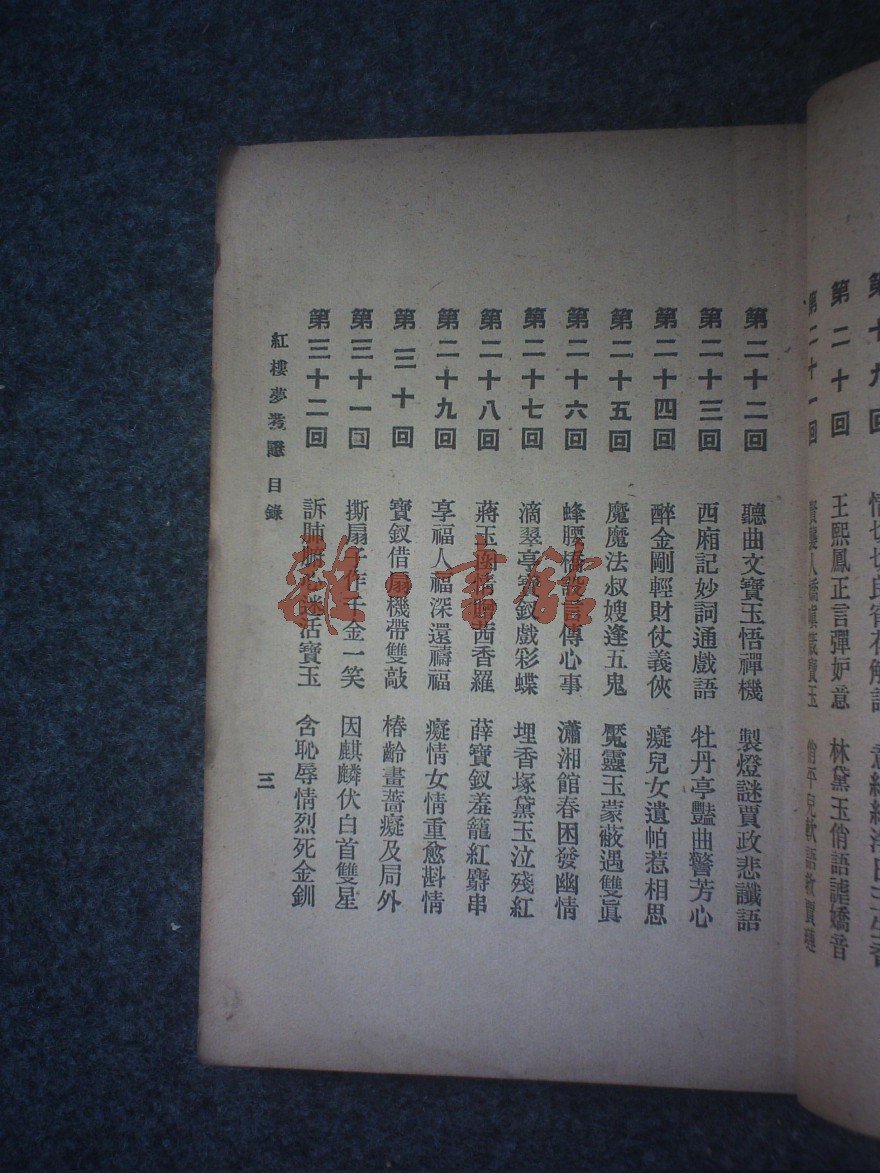 第十九回 情切切良宵花解語 意綿綿
第二十回 王熙鳳正言彈妒意 林黛玉俏語謔嬌音
第二十一回 賢襲人嬌嗔箴寶玉 俏平兒軟語救賈璉
第二十二回 聽曲文寶玉悟禪機 製燈謎賈政悲讖語
第二十三回 西廂記妙詞通戲語 牡丹亭豔曲警芳心
第二十四回 醉金剛輕財仗義俠 癡兒女遺帕惹相思
第二十五回 魔魔法叔嫂逢五鬼 魘靈玉蒙蔽遇雙眞
第二十六回 蜂腰橋設言傳心事 瀟湘館春困發幽情
第二十七回 滴翠亭寶釵戲彩蝶 埋香塚黛玉泣殘紅
第二十八回 蔣玉函情贈茜香羅 薛寶釵羞籠紅麝串
第二十九回 享福人福深還禱福 癡情女情重愈斟情
第三十回 寶釵借扇機帶雙敲 椿齡畫薔癡及局外
第三十一回 撕扇子作千金一笑 因麒麟伏白首雙星
第三十二回 訴肺腑心迷活寶玉 含恥辱情烈死金釧
紅樓夢考證 目錄
三
雜·書館